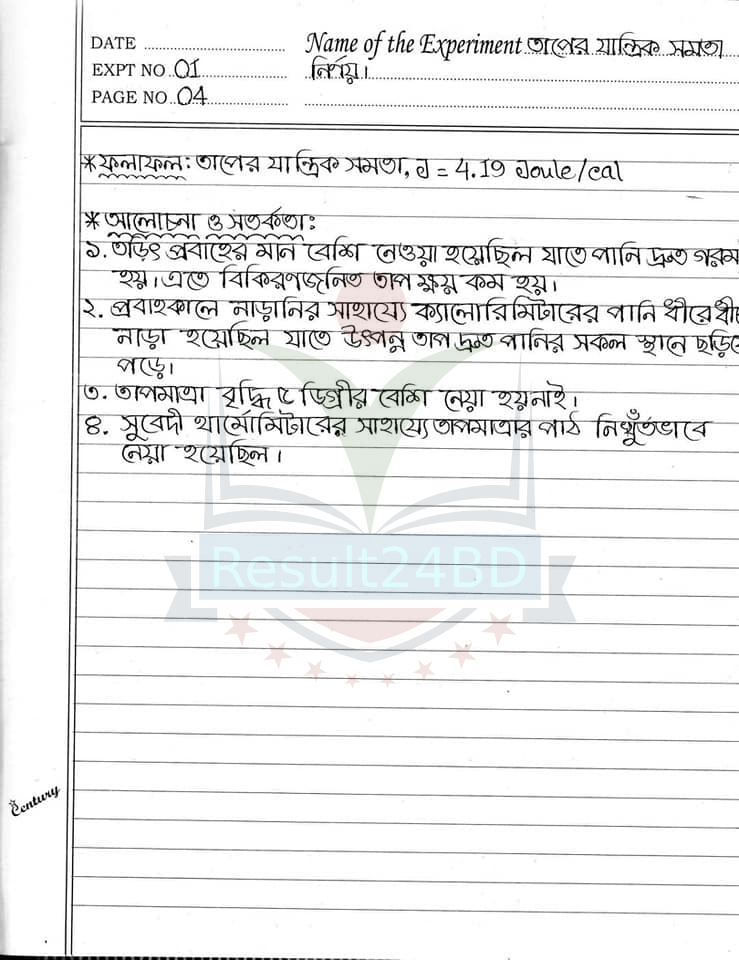 DATE
Name of the Experiment তাপের যান্ত্রিক সমতা
EXPT NO 01
নির্ণয়।
PAGE NO 04
*ফলাফল: তাপের যান্ত্রিক সমতা, J = 4.19 Joule/cal
*আলোচনা ও সতর্কতাঃ
১. তড়িৎ প্রবাহের মান বেশি নেওয়া হয়েছিল যাতে পানি দ্রুত গরম
হয়। এতে বিকিরণজনিত তাপ ক্ষয় কম হয়।
২. প্রবাহকালে নাড়ানির সাহায্যে ক্যালোরিমিটারের পানি ধীরে
নাড়া হয়েছিল যাতে উৎপন্ন তাপ দ্রুত পানির সকল স্থানে
পড়ে।
৩. তাপমাত্রা বৃদ্ধি ৫ ডিগ্রীর বেশি নেয়া হয়নাই।
৪. সুবেদী থার্মোমিটারের সাহায্যে তাপমাত্রার পাঠ নিখুঁর্তভাবে
নেয়া হয়েছিল।
Result24BD
Century